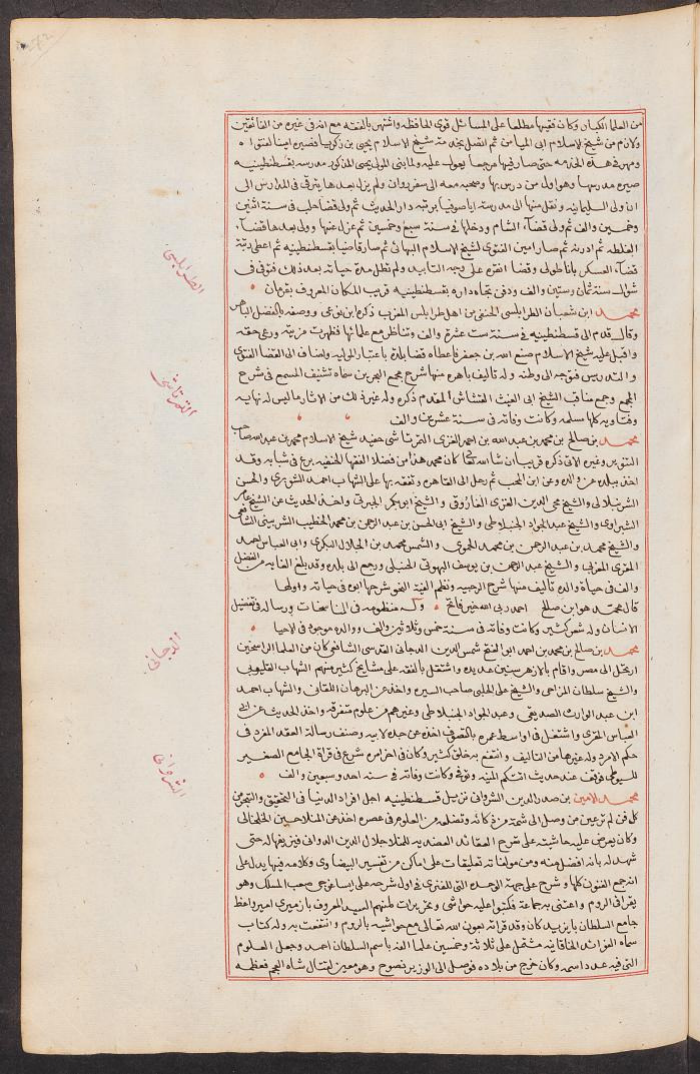 من العلما الكبار وكان فقيها مطلعا على المسائل قوى الحافظه واشتهر بالفقه مع انه فى غيره من الفائقين
ولازم من شيخ الاسلام ابى الميامن ثم اتصل بخدمة شيخ الاسلام يحيى بن زكريا فصيره امينا لفتواه
ومهر فى هذه الخدمه حتى صار فيها مرجعا يعول عليه ولما بنى المولى يحيى المذكور مدرسه بقسطنطينيه
صيره مدرسها وهو اول من درس بها وصحبه معه الى سفر روان ولم يزل بعدها يترقى فى المدارس الى
ان ولى السليمانيه ونقل منها الى مدرسة اياصوفيا برتبة دار الحديث ثم ولى قضا حلب فى سنة اثنين
وخمسين والف ثم ولى قضآء الشام ودخلها فى سنة سبع وخمسين ثم عزل عنها وولى بعدها قضآء
الغلطه ثم ادرنه ثم صار امين الفتوى لشيخ الاسلام البهائى ثم صار قاضيا بقسطنطينيه ثم اعطى رتبة
قضآء العسكر باناطولى وقضا انقره على وجه التابيد ولم تطل مدة حياته بعد ذلك فتوفى فى
شوال سنة ثمان وستين والف ودفن تجاه داره بقسطنطينيه قريب المكان المعروف بقرمان
محمد ابن شعبان الطرابلسى الحنفى من اهل طرابلس المغرب ذكره ابن نوعى ووصفه بالفضل الباهر
وقال قدم الى قسطنطينيه فى سنة ست عشرة والف وتناظر مع علمائها فظهرت مزيته ورعى حقه
واقبل عليه شيخ الاسلام صنع الله بن جعفر فاعطاه قضا بلدة باعتبار الموليه ولضاف الى القضا الفتوى
والتدريس فتوجه الى وطنه وله تاليف باهره منها شرح مجمع البحرين سماه تشنيف المسمع فى شرح
المجمع وجمع مناقب الشيخ ابى الغيث القشاش المقدم ذكره وله غير ذلك من الاثار ما ليس له نهايه
وفتاويه كلها مسلمه وكانت وفاته فى سنة عشرين والف
محمد بن صالح بن محمد بن عبد الله بن احمد الغزى التمرتاشى حفيد شيخ الاسلام محمد بن عبد الله صاحب
التنوير وغيره الاتى ذكره قريبا ان شا الله تعالى كان محمد هذا من فضلا الفقها الحنفيه برع فى شبابه وقد
اخذ ببلده عن والده وعن ابن المحب ثم رحل الى القاهره وتفقه بها على الشهاب احمد الشوبرى والحسن
الشرنبلالى والشيخ محى الدين الغزى الفاروقى والشيخ ابى بكر الجبرتى واخذ الحديث عن الشيخ عامر
الشبراوى والشيخ عبد الجواد الجنبلاطى والشيخ ابى الحسن بن عبد الرحمن بن محمد الخطيب الشربينى الشافعى
والشيخ محمد بن عبد الرحمن بن محمد الحموى والشمس محمد بن الجلال البكرى وابى العباس احمد
المقرى المغربى والشيخ عبد الرحمن بن يوسف البهوتى الحنبلى ورجع الى بلده وقد بلغ الغايه من الفضل
والف فى حياة والده تاليف منها شرح الرحبيه ونظم الفية النحو شرحها ابوه فى حياته واولها
قال محمد هو ابن صالح احمد ربى الله خير فاتح وله منظومه فى المناسخات ورساله فى تفضيل
الانسان وله شعر كثير وكانت وفاته فى سنة خمس وثلاثين والف ووالده موجود فى الاحيا
محمد بن صالح بن محمد بن احمد ابى الفتح شمس الدين الدجانى القدسى الشافعى كان من العلما الراسخين
ارتحل الى مصر واقام بالازهر سنين عديده واشتغل بالفقه على مشايخ كثير منهم الشهاب القليوبى
والشيخ سلطان المزاحى والشيخ على الحلبى صاحب السيره واخذ عن البرهان اللقانى والشهاب احمد
ابن عبد الوارث الصديقى وعبد الجواد الجنبلاطى وغيرهم من علوم متفرقه واخذ الحديث عن ابى
العباس المقرى واشتغل فى اواسط عمره بالتصوف اخذه عن جده لابيه وصنف رسالة العقد المفرد فى
حكم الامرد وله غيرها من التاليف وانتفع به خلق كثير وكان فى اخر امره شرع فى قراة الجامع الصغير
للسيوطى فوقف عند حديث اتتكم المنيه وتوفى وكانت وفاته فى سنه احد وسبعين والف
محمد الامين بن صدر الدين الشروانى نزيل قسطنطينيه اجل افراد الدنيا فى التحقيق والتبحر من
كل فن لم تر عين من وصل الى شمة مرة كانه وتضلعه من العلوم فى عصره اخذ عن المنلا حسين الخلخالى
وكان يعرض عليه حاشيته على شرح العقائد العضديه للمنلا جلال الدين الدوانى فيزيفها له حتى
شهد له بانه افضل منه ومن مولفاته تعليقات على اماكن من تفسير البيضاوى وكلامه فيها يدل على
انه جمع الفنون كلها وشرح على جهة الوحده التى للفنرى فى اول شرحه على ايساغوجى صعب المسلك وهو
يقرا فى الروم واعتنى به جماعة فكتبوا عليه حواشى وتحريرات منهم السيد المعروف بازميرى امير واعظ
جامع السلطان بايزيد كان وقد قراته بعون الله تعالى مع حواشيه بالروم وانتفعت به وله كتاب
سماه الفوائد الخاقانيه مشتمل على ثلاثة وخمسين علما الفه باسم السلطان احمد وجعل العلوم
التى فيه عدد اسمه وكان خرج من بلاده فوصل الى الوزير نصوح وهو معين لقتال شاه العجم فعظمه
الطرابلسى
التمرتاشى
الدجانى
الشروانى